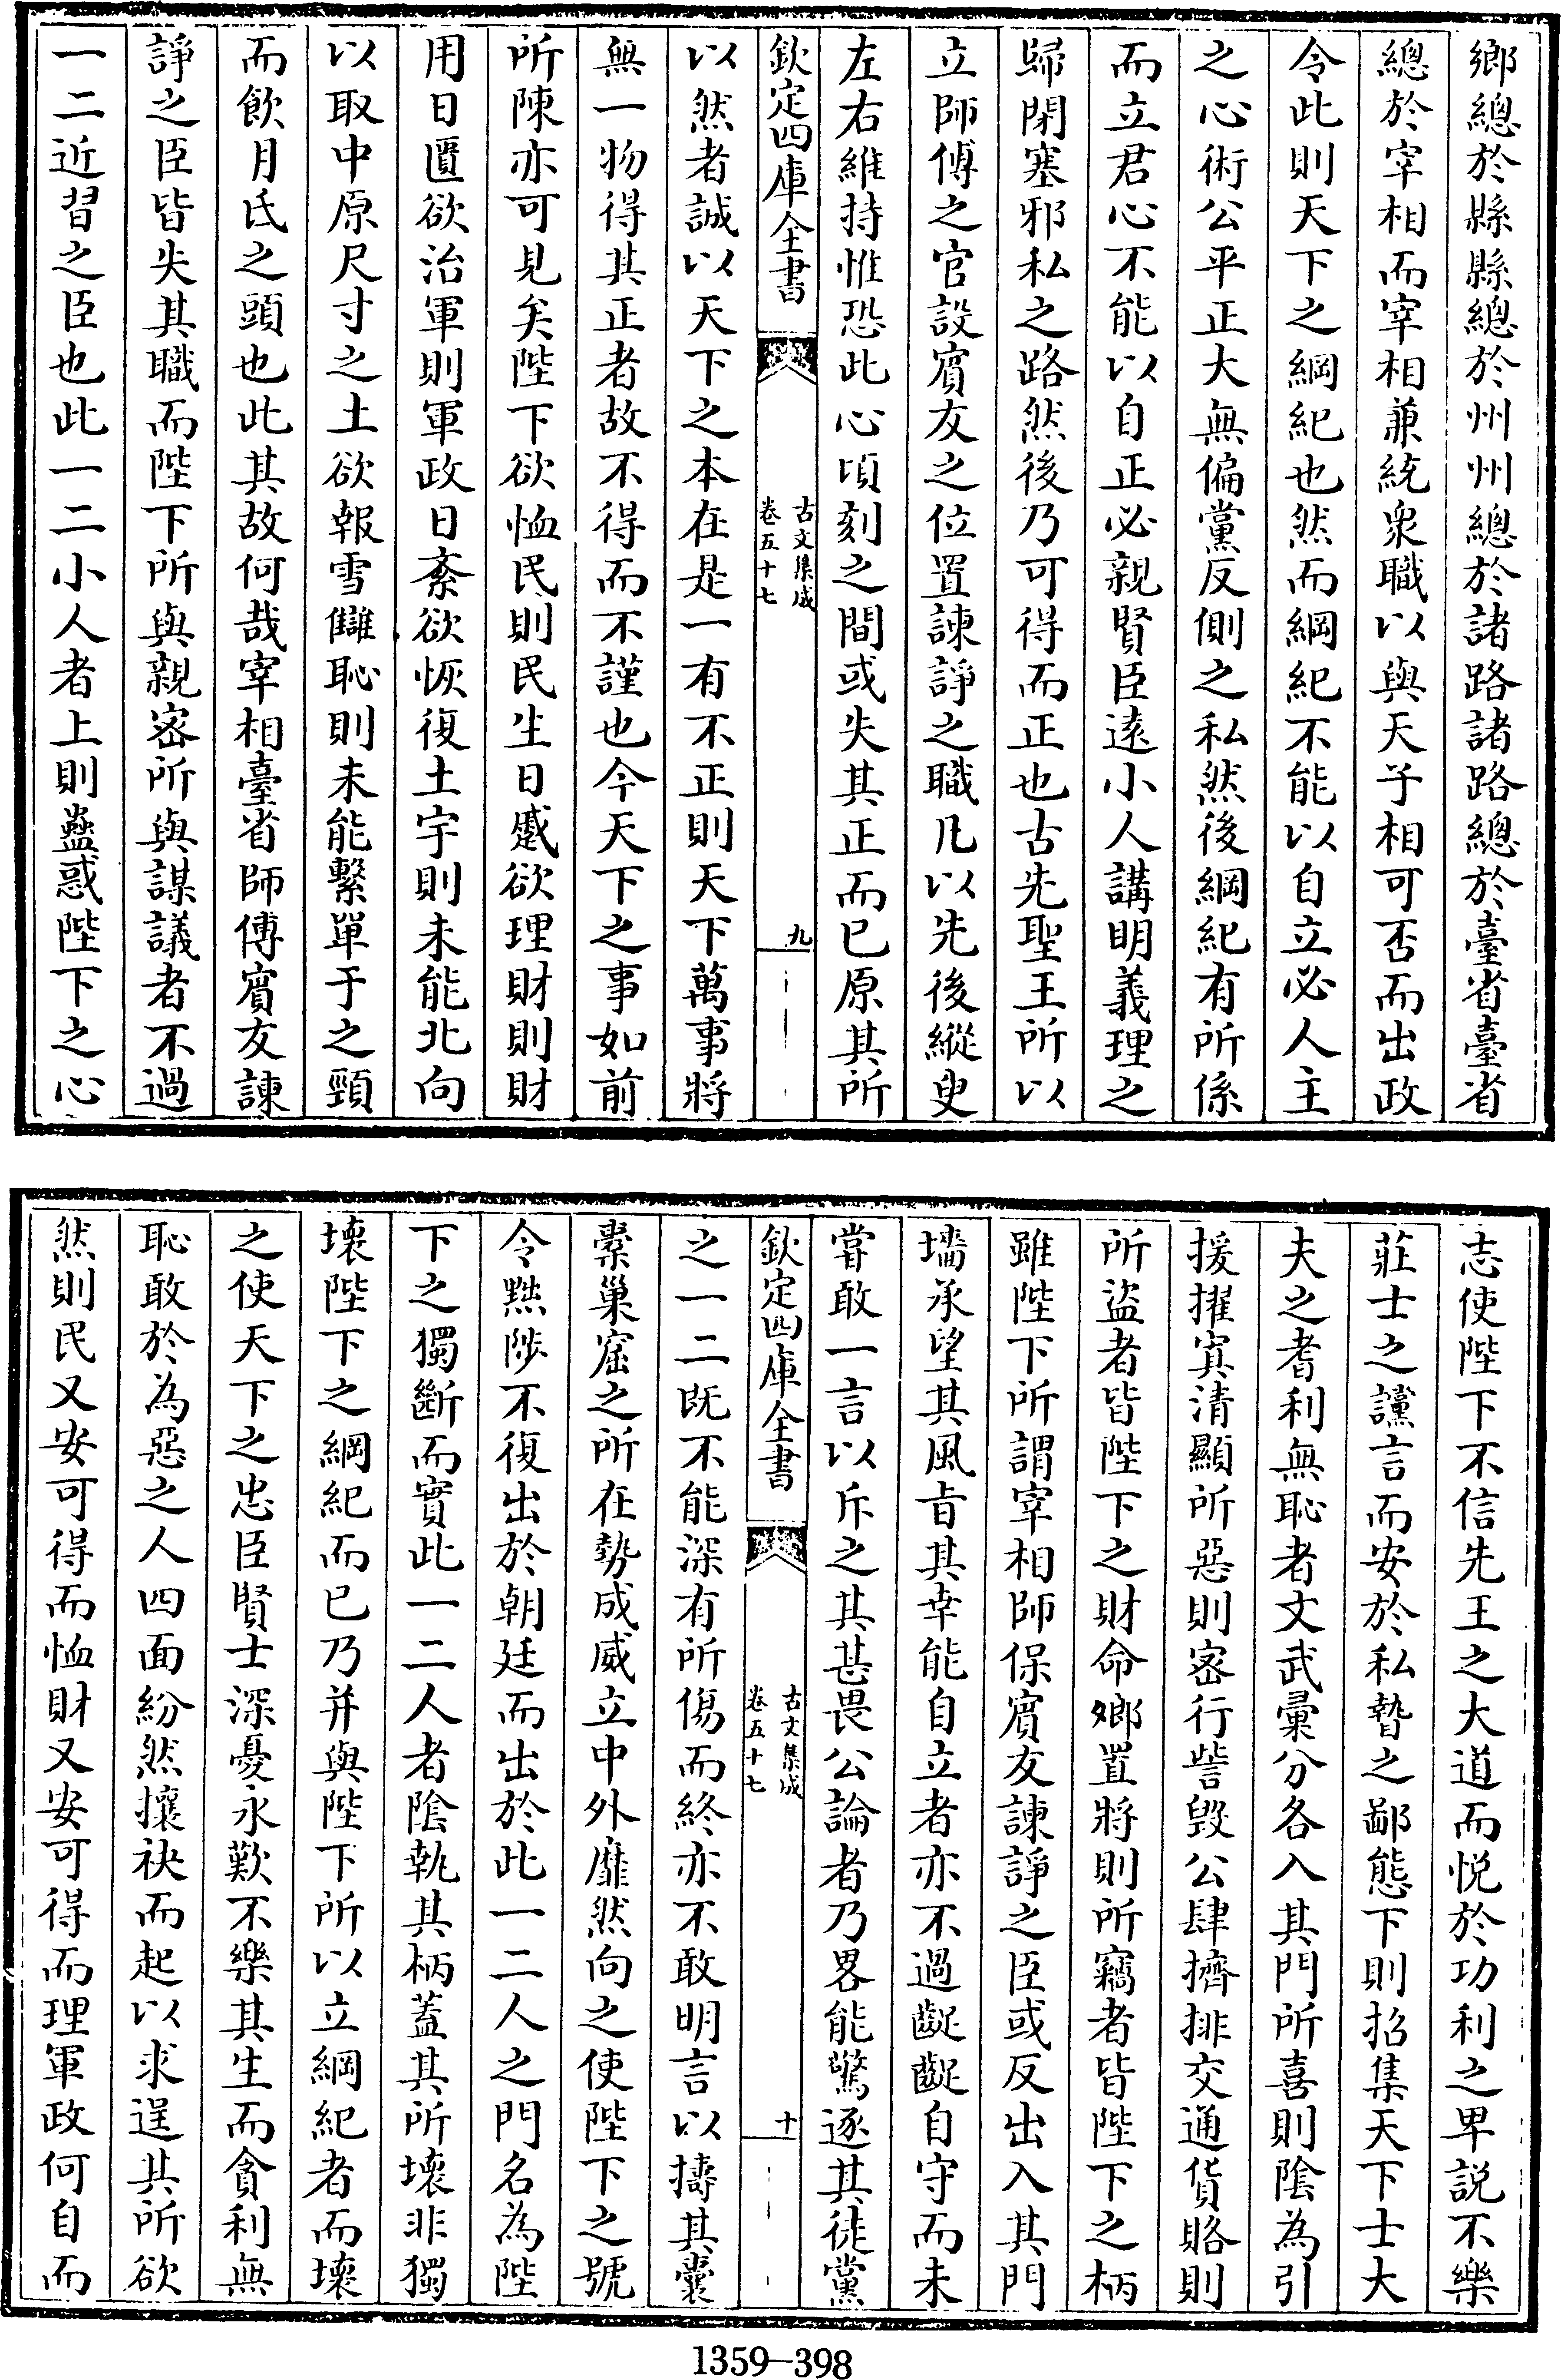 鄉總於縣縣總於州州總於諸路諸路總於臺省臺省
總於宰相而宰相兼統衆職以與天子相可否而出政
令此則天下之綱紀也然而綱紀不能以自立必人主
之心術公平正大無偏黨反側之私然後綱紀有所係
而立君心不能以自正必親賢臣遠小人講明義理之
歸閉塞邪私之路然後乃可得而正也古先聖王所以
立師傅之官設賓友之位置諫諍之職凡以先後縱臾
左右維持惟恐此心頃刻之間或失其正而已原其所
欽定四庫全書
古文集成
卷五十七
九
以然者誠以天下之本在是一有不正則天下萬事將
無一物得其正者故不得而不謹也今天下之事如前
所陳亦可見矣陛下欲恤民則民生日蹙欲理財則財
用日匱欲治軍則軍政日紊欲恢復土宇則未能北向
以取中原尺寸之土欲報雪讎恥則未能繫單于之頸
而飲月氏之頭也此其故何哉宰相臺省師傅賓友諫
諍之臣皆失其職而陛下所與親密所與謀議者不過
一二近習之臣也此一二小人者上則蠱惑陛下之心
志使陛下不信先王之大道而悅於功利之卑說不樂
莊士之讜言而安於私暬之鄙態下則招集天下士大
夫之耆利無恥者文武彙分各入其門所喜則陰為引
援擢寘清顯所惡則密行訾毀公肆擠排交通貨賂則
所盜者皆陛下之財命卿置將則所竊者皆陛下之柄
雖陛下所謂宰相師保賓友諫諍之臣或反出入其門
墻承望其風旨其幸能自立者亦不過齪齪自守而未
嘗敢一言以斥之其甚畏公論者乃畧能驚逐其徒黨
欽定四庫全書
古文集成
卷五十七
十
之一二既不能深有所傷而終亦不敢明言以擣其囊
橐巢窟之所在勢成威立中外靡然向之使陛下之號
令黜陟不復出於朝廷而出於此一二人之門名為陛
下之獨斷而實此一二人者陰執其柄蓋其所壞非獨
壞陛下之綱紀而已乃并與陛下所以立綱紀者而壞
之使天下之忠臣賢士深憂永歎不樂其生而貪利無
恥敢於為惡之人四面紛然攘袂而起以求逞其所欲
然則民又安可得而恤財又安可得而理軍政何自而
1359—398